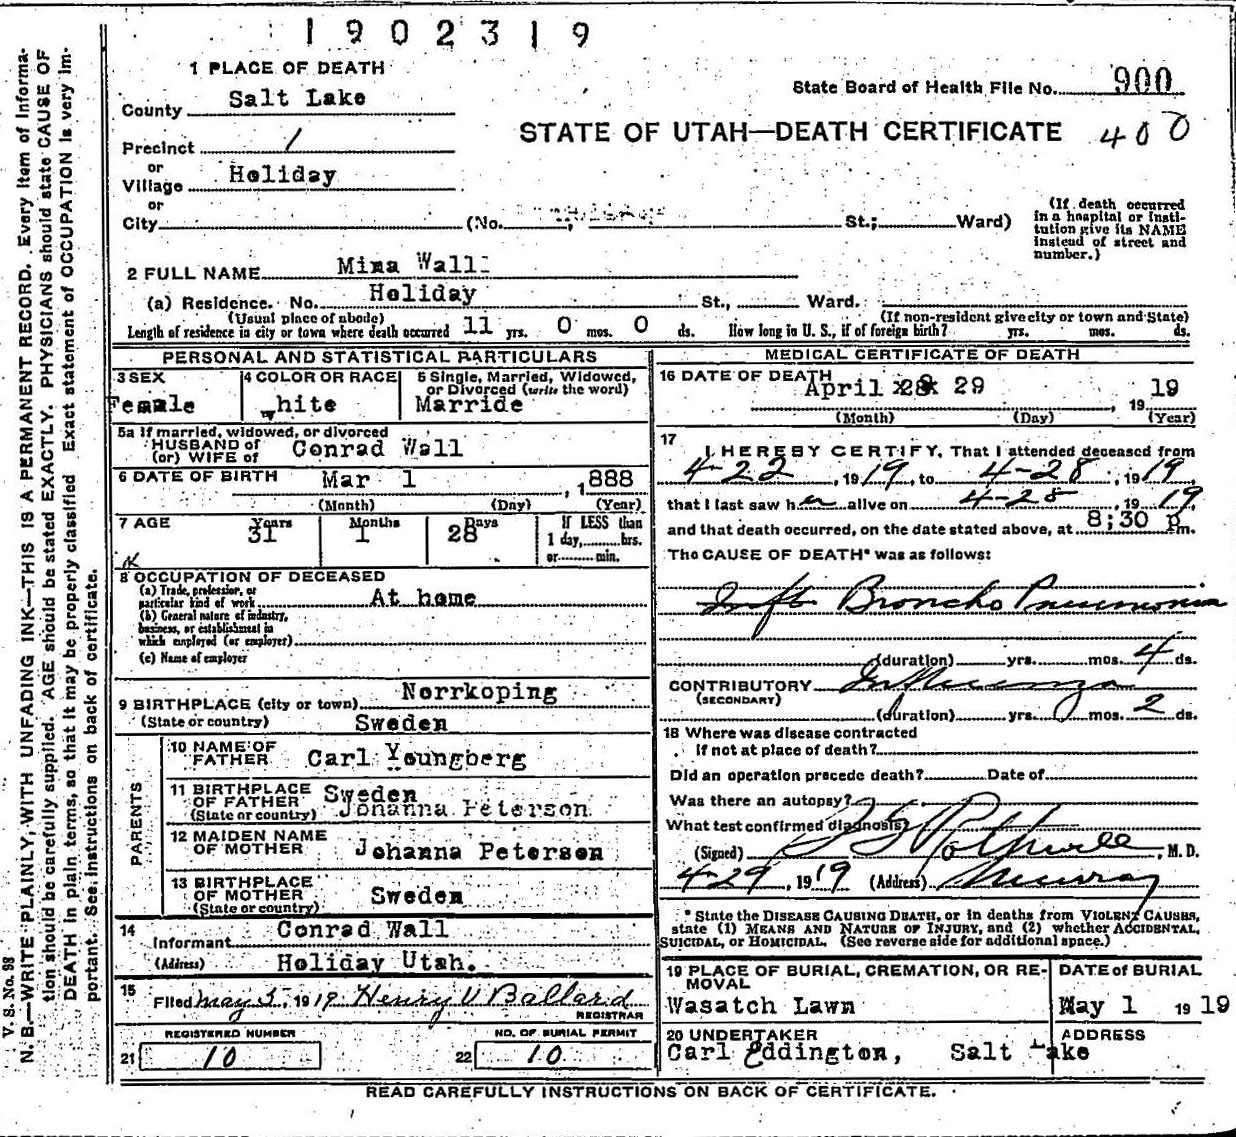 1902319
1 PLACE OF DEATH
County Salt Lake
State Board of Health File No. 900
STATE OF UTAH—DEATH CERTIFICATE 400
Precinct 1
or
Village Holiday
or
City (No. St.; Ward)
(If death occurred
in a hospital or insti-
tution give its NAME
instead of street and
number.)
2 FULL NAME Mina Wall
(a) Residence. No. Holiday St., Ward.
(Usual place of abode) (If non-resident give city or town and State)
Length of residence in city or town where death occurred 11 yrs. 0 mos. 0 ds. How long in U. S., if of foreign birth? yrs. mos. ds.
PERSONAL AND STATISTICAL PARTICULARS
3 SEX
Female
4 COLOR OR RACE
White
5 Single, Married, Widowed,
or Divorced (write the word)
Marride
5a If married, widowed, or divorced
HUSBAND of
(or) WIFE of Conrad Wall
6 DATE OF BIRTH Mar 1, 1888
(Month) (Day) (Year)
7 AGE Years Months Days
31 1 28
If LESS than
1 day,........hrs.
or........min.
8 OCCUPATION OF DECEASED
(a) Trade, profession, or
particular kind of work At home
(b) General nature of industry,
business, or establishment in
which employed (or employer)
(c) Name of employer
9 BIRTHPLACE (city or town) Norrkoping
(State or country) Sweden
PARENTS
10 NAME OF
FATHER Carl Youngberg
11 BIRTHPLACE
OF FATHER Sweden
(State or country) Johanna Peterson
12 MAIDEN NAME
OF MOTHER Johanna Peterson
13 BIRTHPLACE
OF MOTHER Sweden
(State or country)
14
Informant Conrad Wall
(Address) Holiday Utah.
15
Filed May 5, 1919 Henry V Ballard
REGISTRAR
REGISTERED NUMBER NO. OF BURIAL PERMIT
21 10 22 10
MEDICAL CERTIFICATE OF DEATH
16 DATE OF DEATH
April 28 29, 1919
(Month) (Day) (Year)
17
I HEREBY CERTIFY, That I attended deceased from
4-22, 1919, to 4-28, 1919
that I last saw her alive on 4-28, 1919
and that death occurred, on the date stated above, at 8;30 p m.
The CAUSE OF DEATH* was as follows:
Broncho Pneumonia
(duration) yrs. mos. 4 ds.
CONTRIBUTORY Influenza
(SECONDARY)
(duration) yrs. mos. 2 ds.
18 Where was disease contracted
if not at place of death?
Did an operation precede death? Date of
Was there an autopsy?
What test confirmed diagnosis?
(Signed) Rothwell, M.D.
4-29, 1919 (Address) Murray
* State the DISEASE CAUSING DEATH, or in deaths from VIOLENT CAUSES,
state (1) MEANS AND NATURE OF INJURY, and (2) whether ACCIDENTAL,
SUICIDAL, or HOMICIDAL. (See reverse side for additional space.)
19 PLACE OF BURIAL, CREMATION, OR RE-
MOVAL
Wasatch Lawn
DATE OF BURIAL
May 1 1919
20 UNDERTAKER
Carl Eddington,
ADDRESS
Salt Lake
READ CAREFULLY INSTRUCTIONS ON BACK OF CERTIFICATE.
V. S. No. 98
N. B.—WRITE PLAINLY, WITH UNFADING INK—THIS IS A PERMANENT RECORD. Every item of informa-
tion should be carefully supplied. AGE should be stated EXACTLY. PHYSICIANS should state CAUSE OF
DEATH in plain terms, so that it may be properly classified. Exact statement of OCCUPATION is very im-
portant. See instructions on back of certificate.